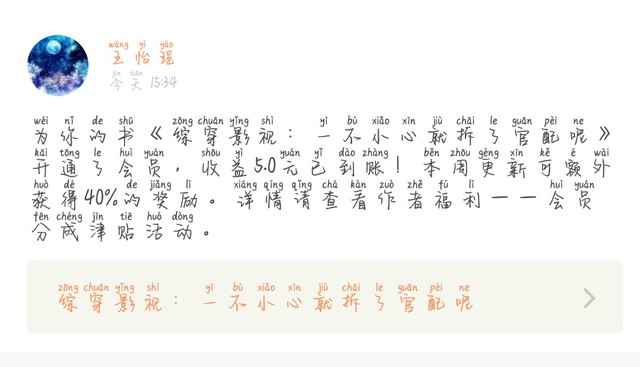 wáng yí yáo
王怡瑶
jīn tiān
今天 15:34
wéi nǐ de shū zōng chuān yǐng shì yī bù xiǎo xīn jiù chāi le guān pèi ne
为你的书《综穿影视：一不小心就拆了官配呢》
kāi tōng le huì yuán shōu yì yuán yǐ dào zhàng běn zhōu gèng xīn kě é wài
开通了会员，收益5.0元已到账！本周更新可额外
huò dé de jiǎng lì xiáng qíng qǐng chá kàn zuò zhě fú lì huì yuán
获得40%的奖励。详情请查看作者福利——会员
fēn chéng jīn tiē huó dòng
分成津贴活动。
zōng chuān yǐng shì yī bù xiǎo xīn jiù chāi le guān pèi ne
综穿影视：一不小心就拆了官配呢